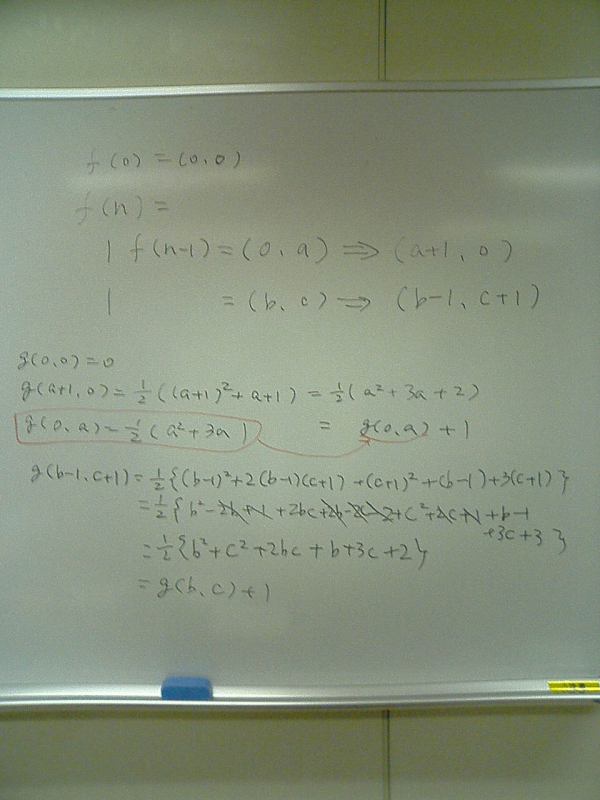 f(0) = (0,0)
f(n) =
| f(n-1) = (0, a) ⟹ (a+1, 0)
| = (b, c) ⟹ (b-1, c+1)
g(0,0) = 0
g(a+1, 0) = 1/2((a+1)² + a+1) = 1/2(a² + 3a + 2)
g(0, a) = 1/2(a² + 3a) = g(0, a) + 1
g(b-1, c+1) = 1/2{(b-1)² + 2(b-1)(c+1) + (c+1)² + (b-1) + 3(c+1)}
= 1/2{b² - 2b + 1 + 2bc + 2b - 2c - 2 + c² + 2c + 1 + b - 1
+ 3c + 3}
= 1/2{b² + c² + 2bc + b + 3c + 2}
= g(b, c) + 1